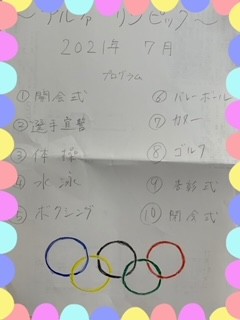 ～アルファリンピック～
2021年 7月
プログラム
①開会式
②選手宣誓
③体操
④水泳
⑤ボクシング
⑥バレーボール
⑦カヌー
⑧ゴルフ
⑨表彰式
⑩閉会式